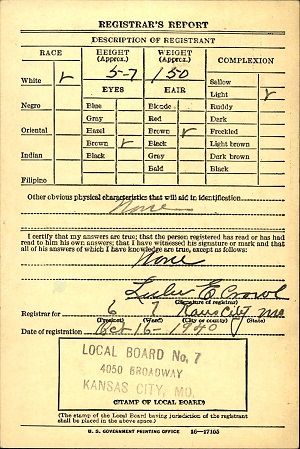 REGISTRAR'S REPORT
DESCRIPTION OF REGISTRANT
RACE HEIGHT (Approx.) WEIGHT (Approx.) COMPLEXION
5-7 150
White ✓ EYES HAIR Sallow
Light ✓
Negro Blue Blonde Ruddy
Gray Red Dark
Oriental Hazel Brown ✓ Freckled
Brown ✓ Black Light brown
Indian Black Gray Dark brown
Bald Black
Filipino
Other obvious physical characteristics that will aid in identification
None
I certify that my answers are true; that the person registered has read or has had
read to him his own answers; that I have witnessed his signature or mark and that
all of his answers of which I have knowledge are true, except as follows:
None
E.
(Signature of registrar)
Registrar for 6 7 Kans City Mo
(Precinct) (Ward) (City or county) (State)
Date of registration Oct 16 - 1940
LOCAL BOARD No. 7
4050 BROADWAY
KANSAS CITY, MO.
(STAMP OF LOCAL BOARD)
(The stamp of the Local Board having jurisdiction of the registrant
shall be placed in the above space.)
U. S. GOVERNMENT PRINTING OFFICE 16—17105